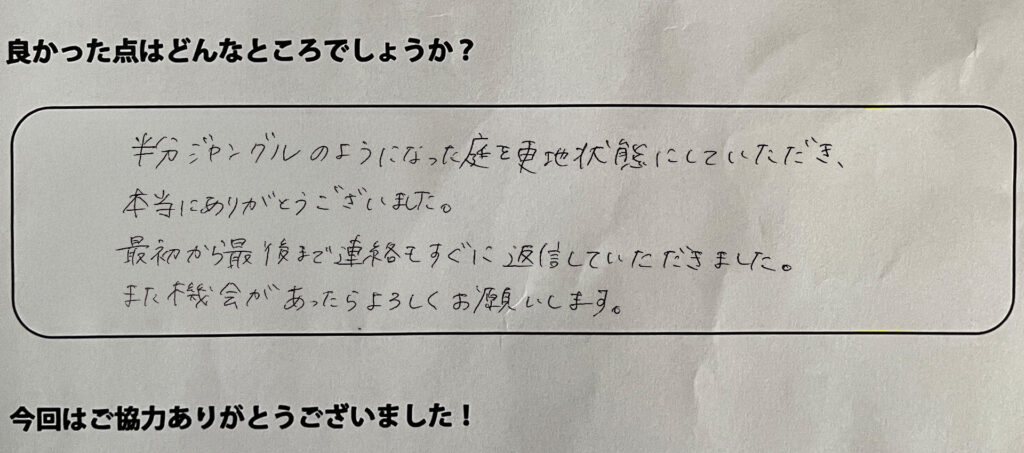 良かった点はどんなところでしょうか？
半分ジャングルのようになった庭を更地状態にしていただき、
本当にありがとうございました。
最初から最後まで連絡もすぐに返信していただきました。
また機会があったらよろしくお願いします。
今回はご協力ありがとうございました！